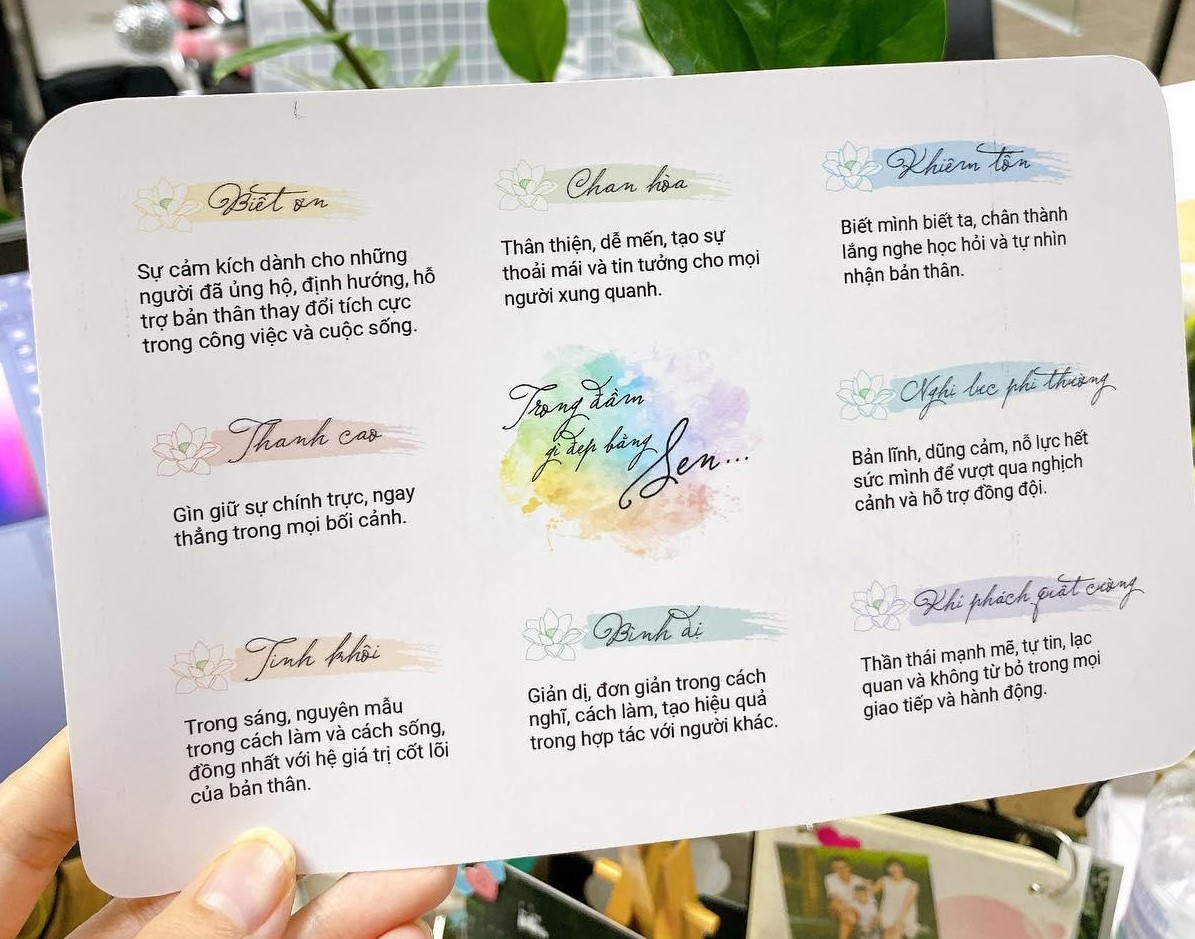 Biết ơn
Sự cảm kích dành cho những
người đã ủng hộ, định hướng, hỗ
trợ bản thân thay đổi tích cực
trong công việc và cuộc sống.
Chan hòa
Thân thiện, dễ mến, tạo sự
thoải mái và tin tưởng cho mọi
người xung quanh.
Khiêm tốn
Biết mình biết ta, chân thành
lắng nghe học hỏi và tự nhìn
nhận bản thân.
Thanh cao
Gìn giữ sự chính trực, ngay
thẳng trong mọi bối cảnh.
Trong đầm
gì đẹp bằng
Sen...
Nghị lực phi thường
Bản lĩnh, dũng cảm, nỗ lực hết
sức mình để vượt qua nghịch
cảnh và hỗ trợ đồng đội.
Tinh khôi
Trong sáng, nguyên mẫu
trong cách làm và cách sống,
đồng nhất với hệ giá trị cốt lõi
của bản thân.
Bình dị
Giản dị, đơn giản trong cách
nghĩ, cách làm, tạo hiệu quả
trong hợp tác với người khác.
Khí phách quật cường
Thần thái mạnh mẽ, tự tin, lạc
quan và không từ bỏ trong mọi
giao tiếp và hành động.